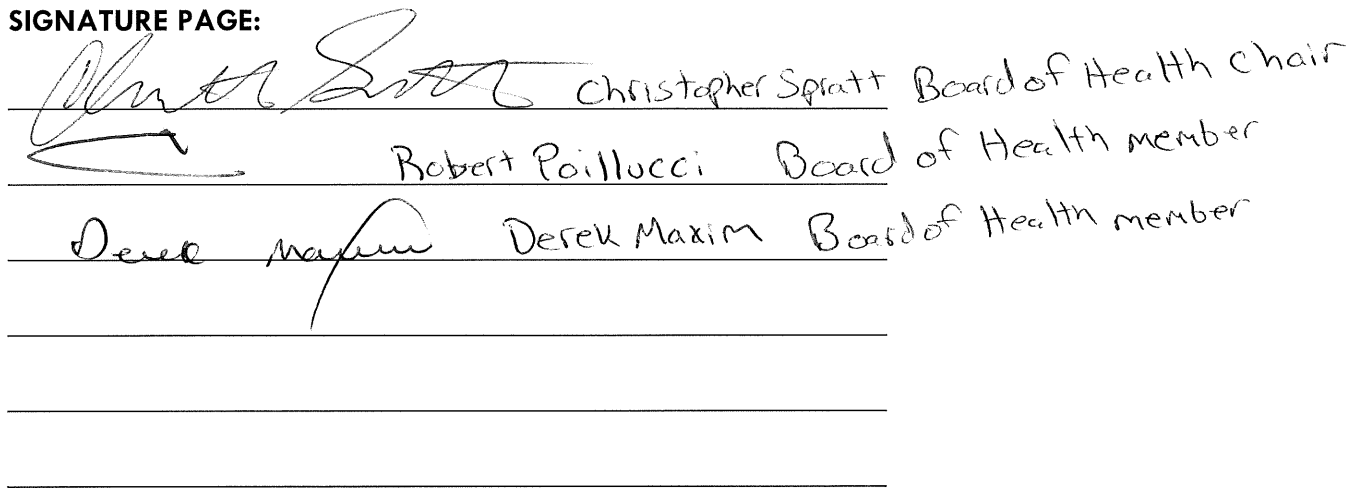 SIGNATURE PAGE:
Christopher Spratt Board of Health Chair
Robert Poillucci Board of Health member
Derek Maxim Derek Maxim Board of Health member